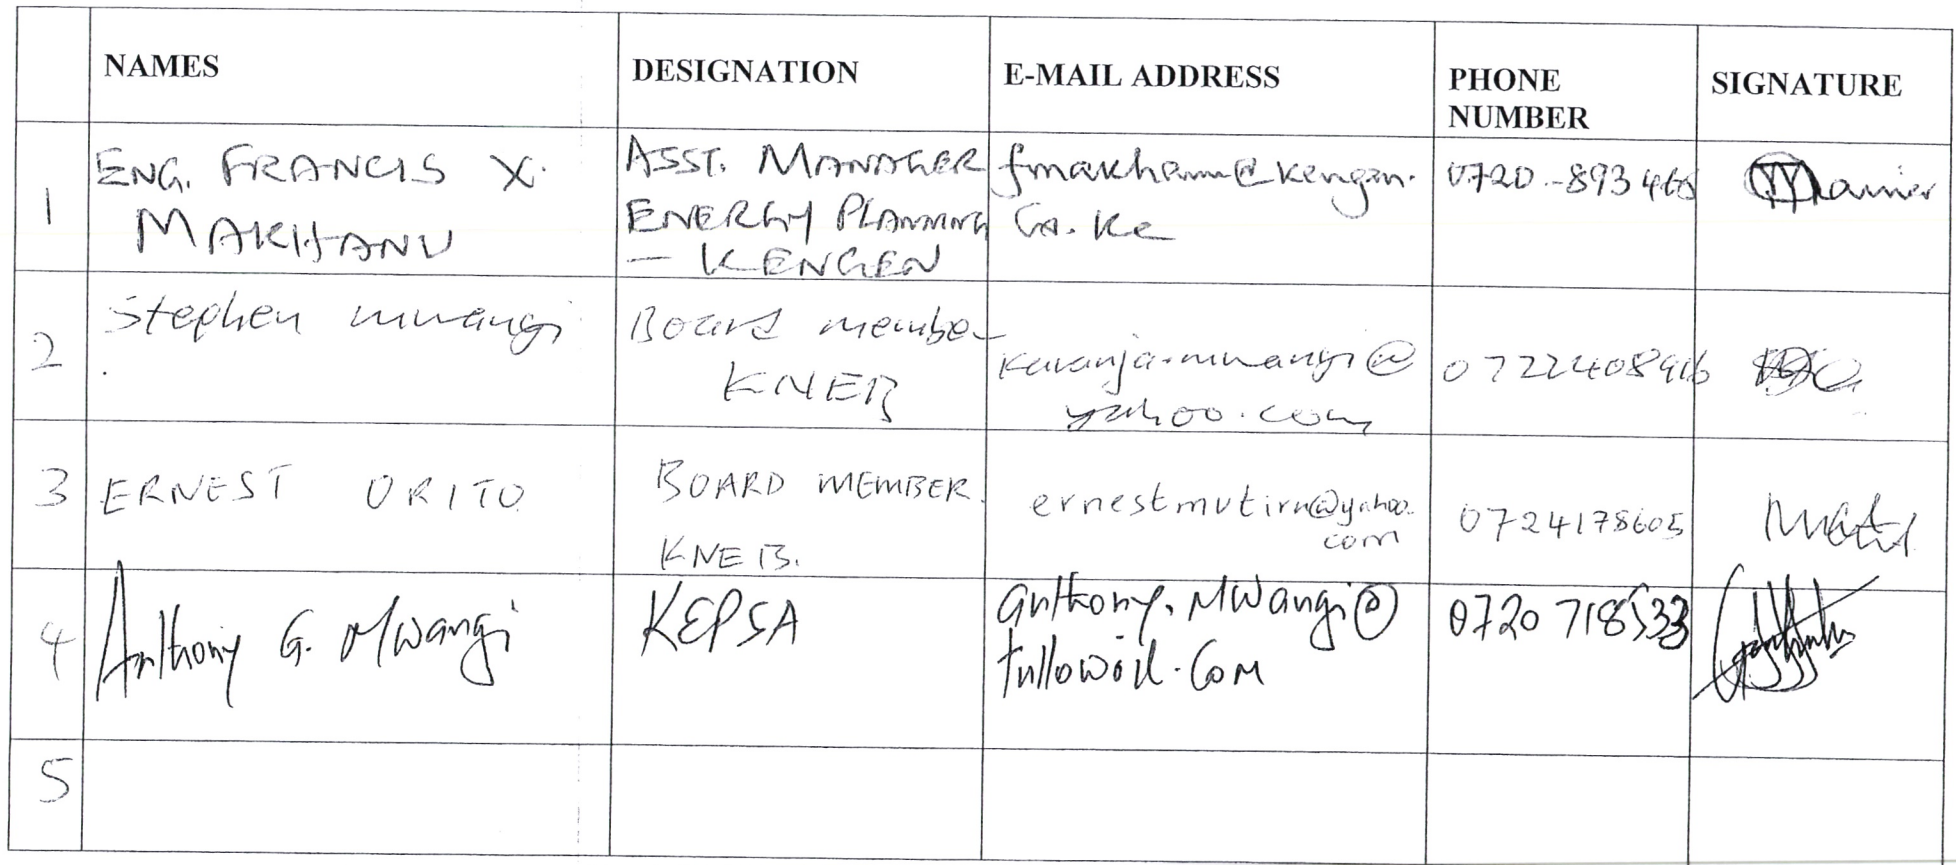 NAMES
DESIGNATION
E-MAIL ADDRESS
PHONE
NUMBER
SIGNATURE
1
ENG. FRANCIS X.
MAKHANU
ASST. MANAGER
ENERGY PLANNING
— KENGEN
fmakhanu@kengen.
Co.Ke
0720-893 465
2
Stephen mwangi
Board member
KNEB
karanja.mwangi@
yahoo.com
0722408916
3
ERNEST ORITO
BOARD MEMBER.
KNEB.
ernestmutiru@yahoo.
com
0724178605
4
Anthony G. Mwangi
KEPSA
anthony.Mwangi@
tullowoil.Com
0720 718533
5